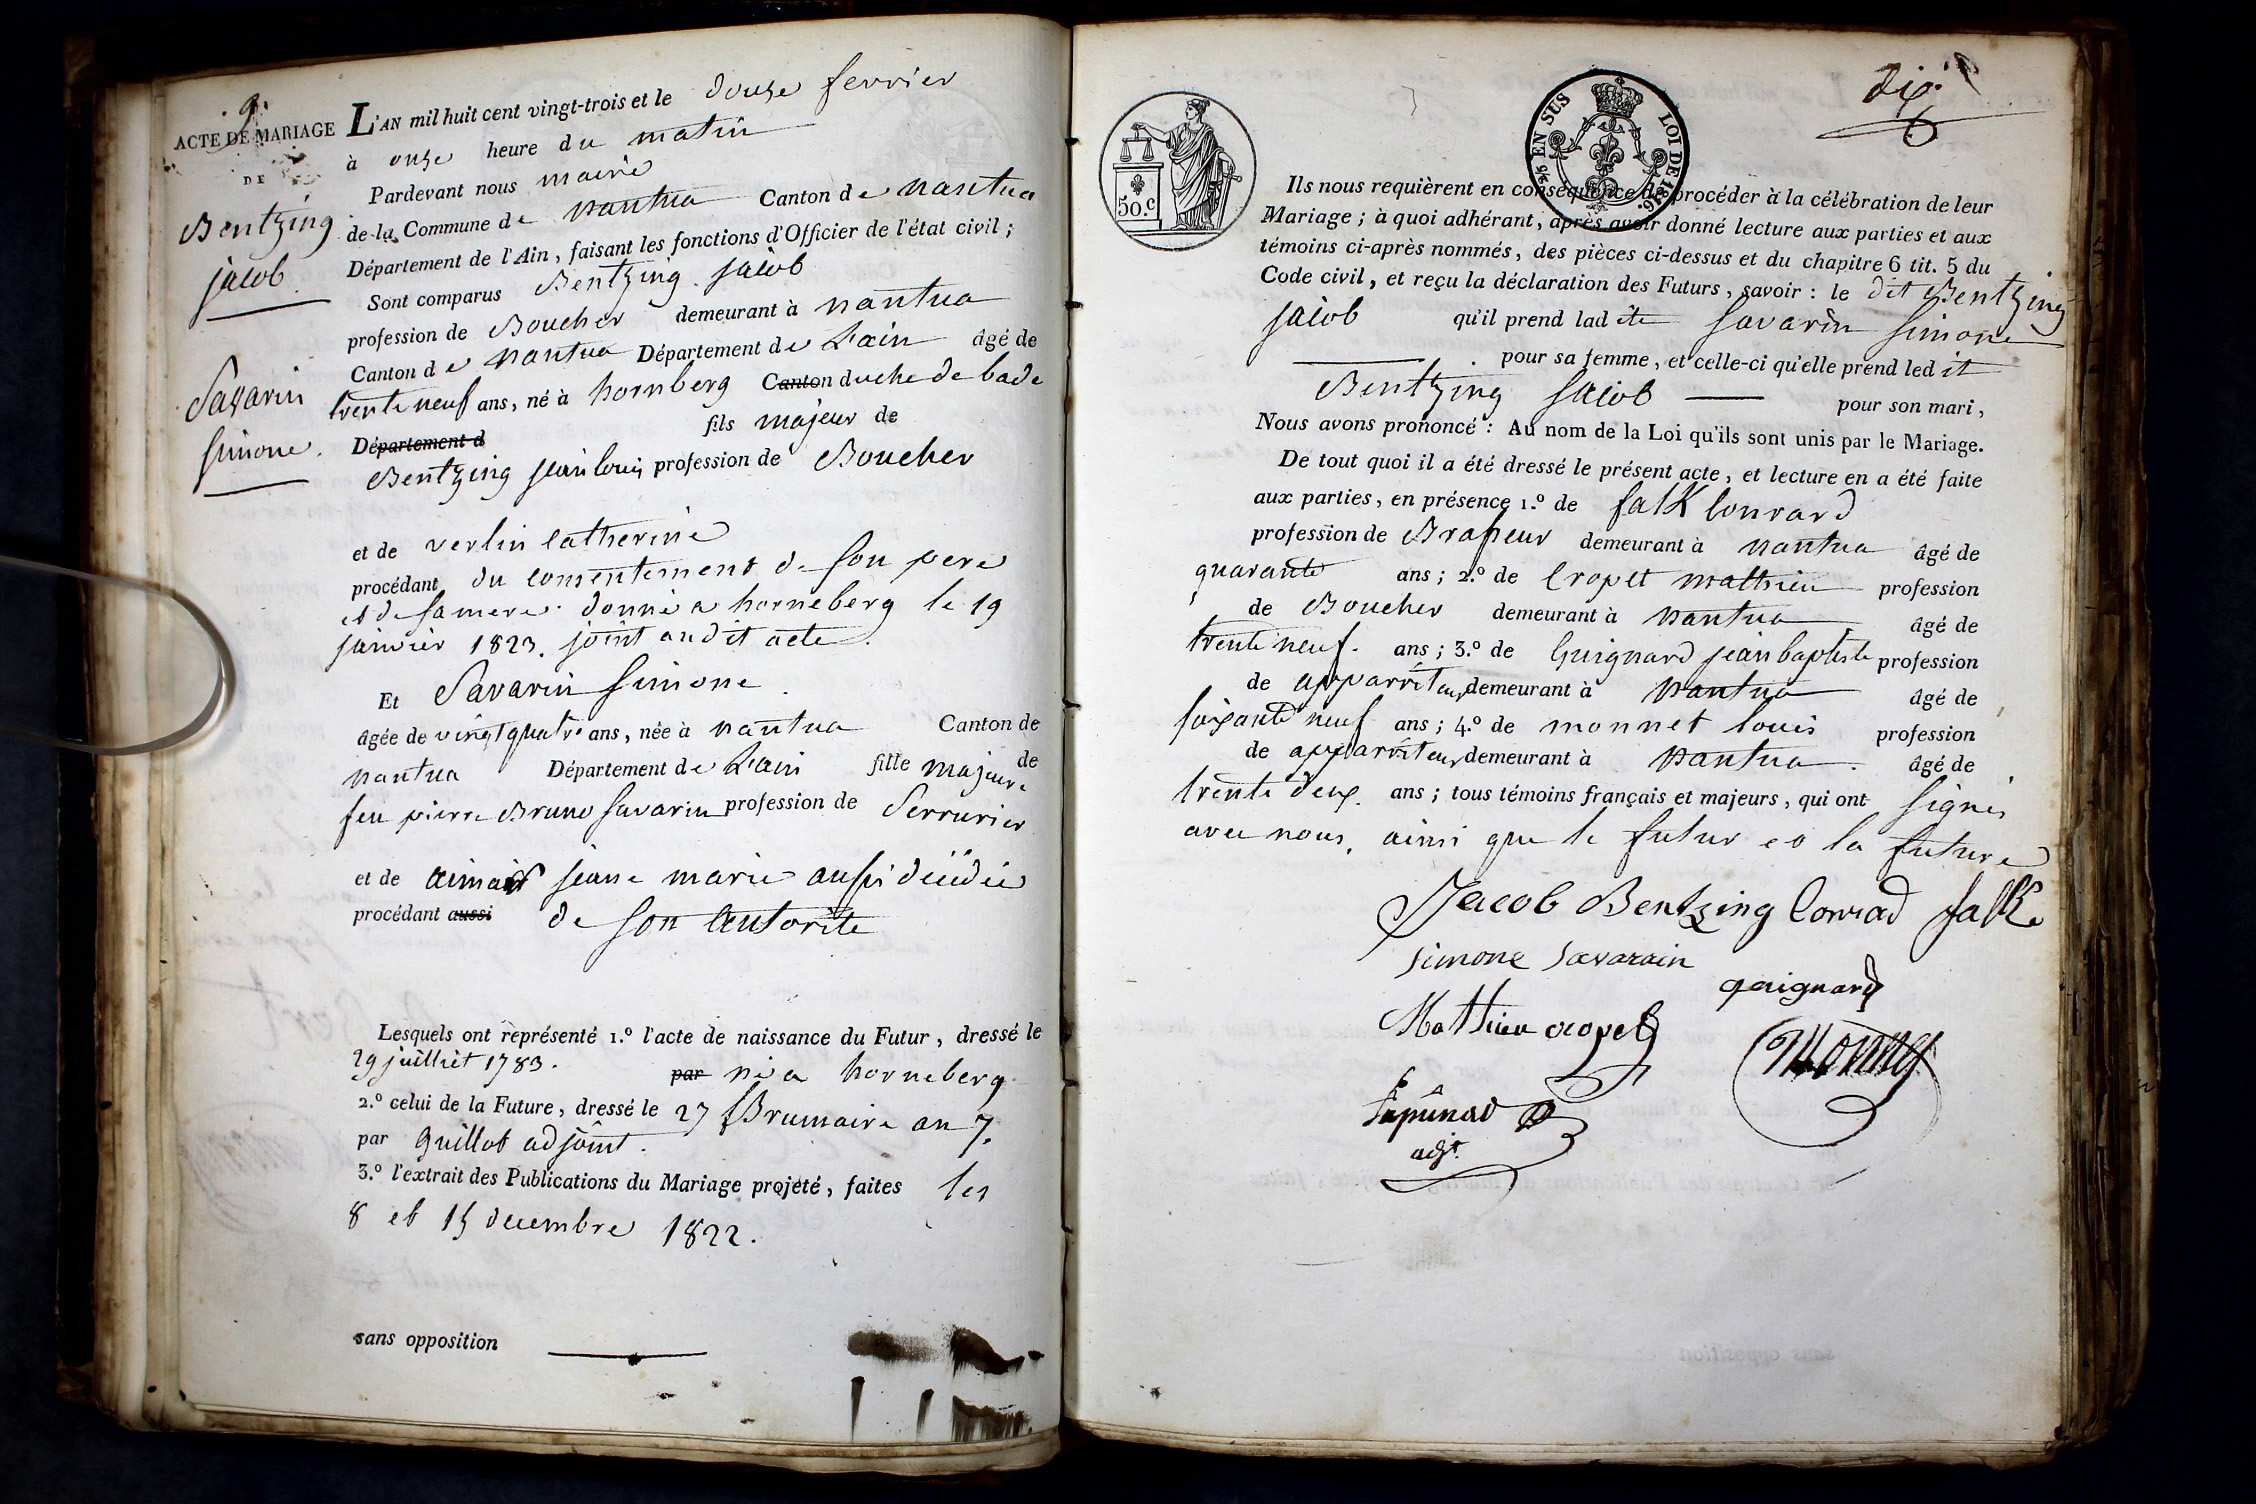 9.
ACTE DE MARIAGE
DE
Bentzing
jacob
Savarin
simone.
L'AN mil huit cent vingt-trois et le douze fevrier
à onze heure du matin
Pardevant nous maire
de la Commune de nantua Canton de nantua
Département de l'Ain, faisant les fonctions d'Officier de l'état civil;
Sont comparus Bentzing jacob
profession de Boucher demeurant à nantua
Canton de nantua Département de L'ain âgé de
trente neuf ans, né à hornberg Canton duche de bade
Département d fils majeur de
Bentzing jean louis profession de Boucher
et de verlin catherine
procédant du consentement de son pere
et de sa mere donné a horneberg le 19
janvier 1823. joint audit acte.
Et Savarin simone
âgée de vingt quatre ans, née à nantua Canton de
nantua Département de L'ain fille majeure de
feu pierre Bruno savarin profession de Serrurier
et de jeane marie aussi déédée
procédant aussi de son autorite
Lesquels ont représenté 1.º l'acte de naissance du Futur, dressé le
29 juillet 1783. par né a horneberg
2.º celui de la Future, dressé le 27 Brumaire an 7.
par Guillot adjoint.
3.º l'extrait des Publications du Mariage projeté, faites les
8 et 15 decembre 1822.
sans opposition
50.c
EN SUS
LOI DE 1816.
dix.
Ils nous requièrent en conséquence de procéder à la célébration de leur
Mariage; à quoi adhérant, après avoir donné lecture aux parties et aux
témoins ci-après nommés, des pièces ci-dessus et du chapitre 6 tit. 5 du
Code civil, et reçu la déclaration des Futurs, savoir: le dit Bentzing
jacob qu'il prend ladite savarin simone
pour sa femme, et celle-ci qu'elle prend ledit
Bentzing jacob pour son mari,
Nous avons prononcé: Au nom de la Loi qu'ils sont unis par le Mariage.
De tout quoi il a été dressé le présent acte, et lecture en a été faite
aux parties, en présence 1.º de falk Conrard
profession de Brasseur demeurant à nantua âgé de
quarante ans; 2.º de Cropet mathieu profession
de Boucher demeurant à nantua âgé de
trente neuf. ans; 3.º de Guignard jean baptiste profession
de apparriteur demeurant à nantua âgé de
soixante neuf ans; 4.º de monnet louis profession
de apparriteur demeurant à nantua âgé de
trente deux. ans; tous témoins français et majeurs, qui ont signés
avec nous, ainsi que le futur et la future
Jacob Bentzing Conrad falk
simone savarain
guignard
Mathieu cropet
Monnet
adjt.